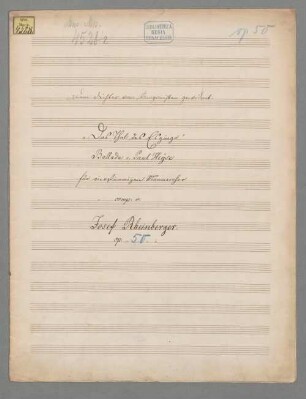 Mus. Mss.
4528/2
BIBLIOTHECA
REGIA
MONACENSIS
op 50
Dem Dichter von Componisten
„Das Thal des Espingo“
Ballade v. Paul Heyse
für vierstimmigen Männerchor
comp. v.
Josef Rheinberger.
op. 50.